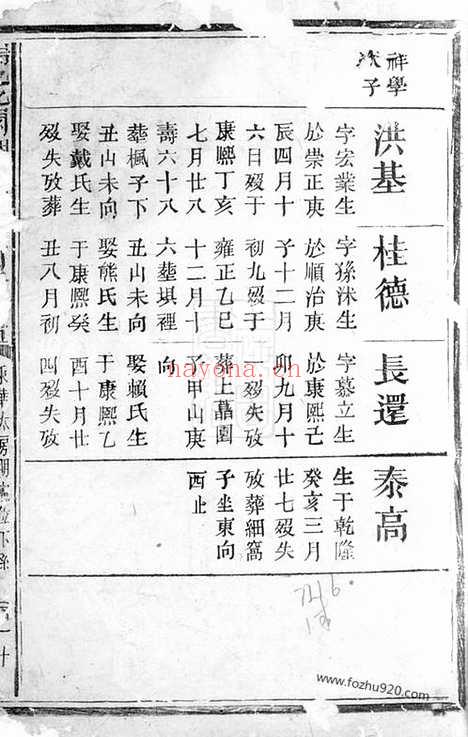 祥學
次子
洪基
字宏業生
於崇正庚
辰四月十
六日歿于
康熙丁亥
七月廿八
壽六十八
塟楓子下
丑山未向
娶戴氏生
歿失攷葬
桂德
字孫沭生
於順治庚
子十二月
初九歿于
雍正乙巳
十二月十
六塟塤裡
丑山未向
娶熊氏生
于康熙癸
丑八月初
長還
字慕立生
於康熙己
卯九月十
一歿失攷
葬上藠園
子甲山庚
向
娶賴氏生
于康熙乙
酉十月廿
四歿失攷
泰高
生于乾隆
癸亥三月
廿七歿失
攷葬細窩
子坐東向
西止
nayona.cn
www.fozhu920.com